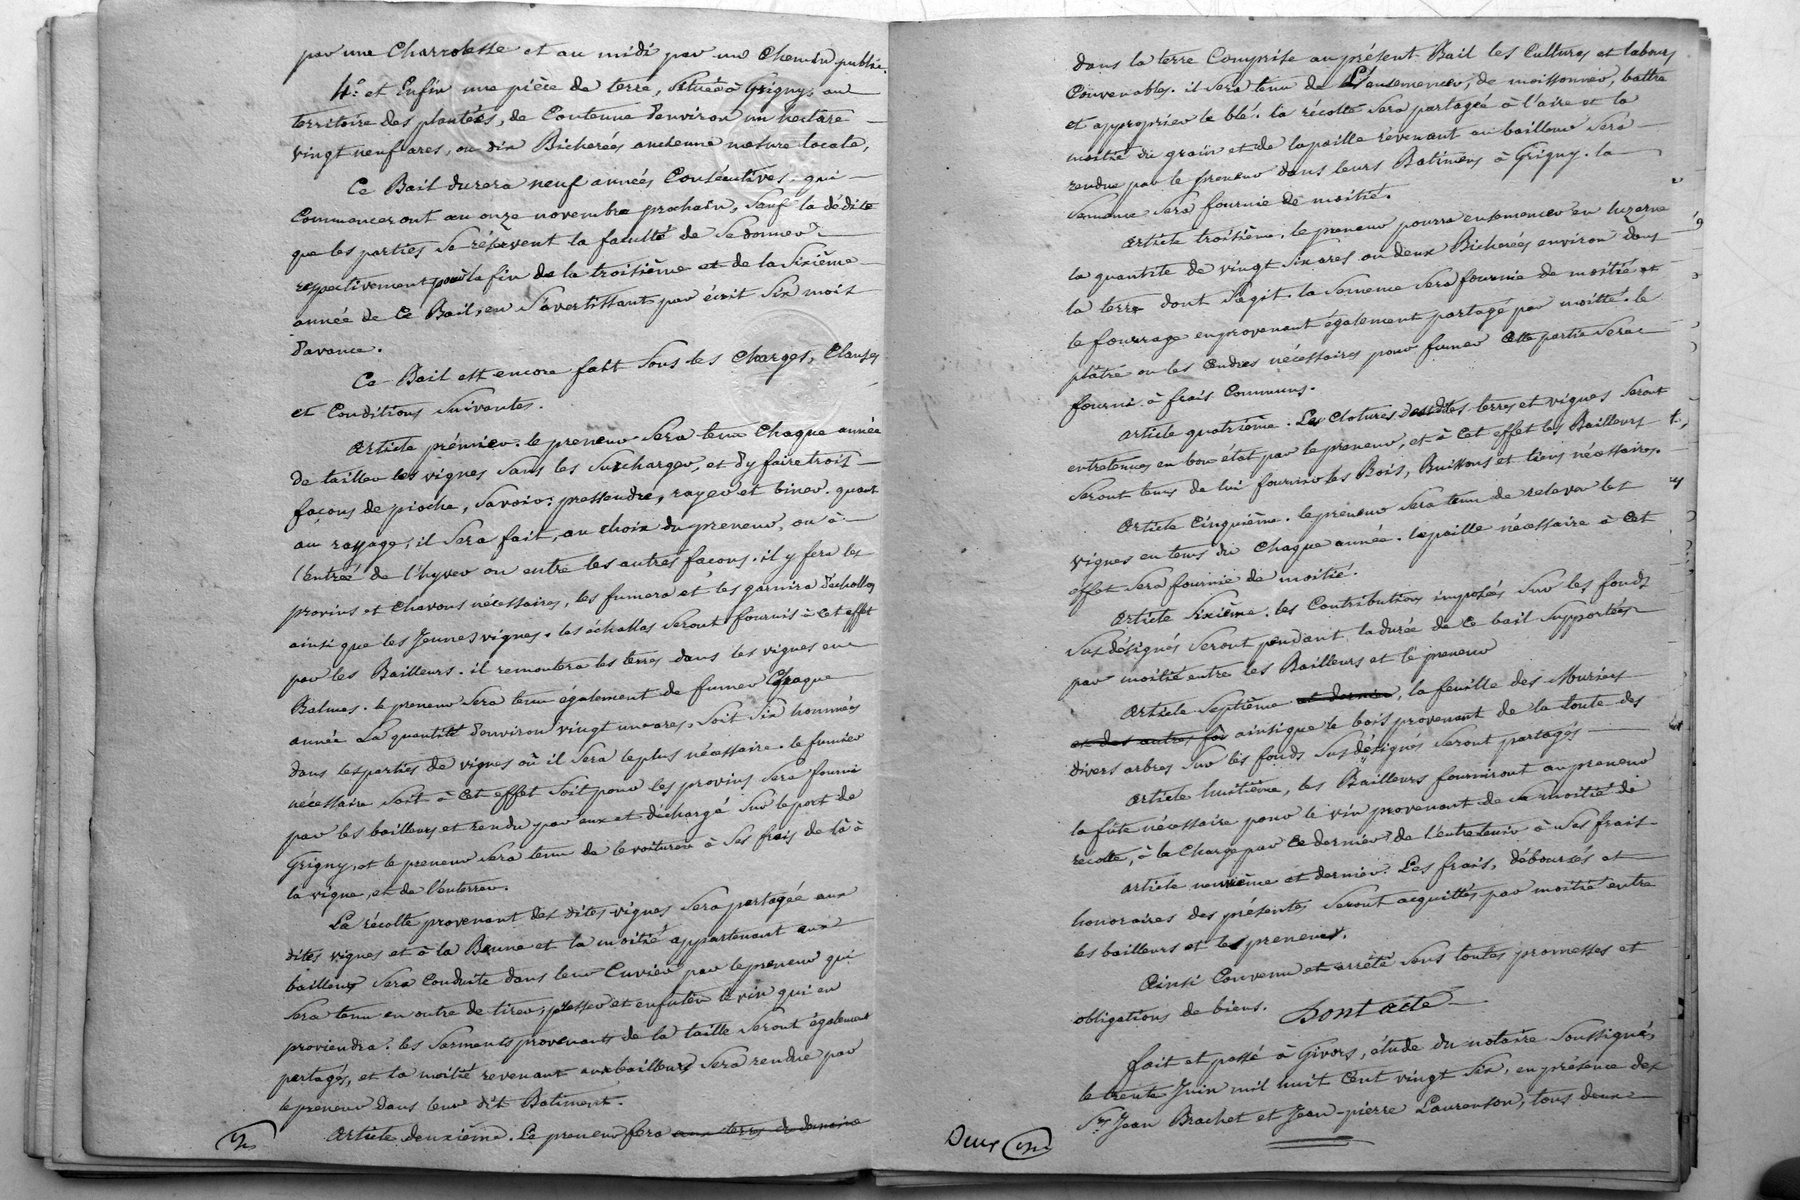 par une Charrobesse et au midi par un Chemin public.
4.° et Enfin une pièce de terre, Située à Grigny, au
territoire des plantées, de Contenue d'environ un hectare
vingt neuf ares, ou dix Bicherées ancienne mesure locale,
Ce Bail durera neuf années Consécutives, qui
Commenceront au onze novembre prochain, Sauf la dédite
que les parties Se résèrvent la faculté de Se donner
respectivement pour la fin de la troisième et de la Sixième
année de Ce Bail, en S'avertissant par écrit Six mois
d'avance.
Ce Bail est encore fait Sous les Charges, Clauses
et Conditions Suivantes.
Article prémier. le preneur Sera tenu Chaque année
de tailler les vignes Sans les Surcharger, et d'y faire trois
façons de pioche, Savoir: pressendre, rayer et biner. quant
au rayage, il Sera fait, au choix du preneur, ou à
l'entrée de l'hyver ou entre les autres façons. il y fera les
provins et Chavons nécessaires, les fumera et les garnira d'echallas
ainsi que les Jeunes vignes. les échallas Seront fournis à Cet effet
par les Bailleurs. il remontera les terres dans les vignes en
Balmes. le preneur Sera tenu également de fumer Chaque
année La quantité d'environ vingt un ares, Soit Six hommées
dans les parties de vignes où il Sera le plus nécessaire. le fumier
nécessaire Soit à Cet effet Soit pour les provins Sera fourni
par les bailleurs et rendu par eux et déchargé Sur le port de
Grigny, et le preneur Sera tenu de le voiturer à Ses frais de là à
la vigne, et de l'enterrer.
La récolte provenant des dites vignes Sera partagée aux
dites vignes et à la Benne et la moitié appartenant aux
bailleurs Sera Conduite dans leur Cuvier par le preneur qui
Sera tenu en outre de tirer, presser et enfuter le vin qui en
proviendra. les Sarments provenants de la taille Seront également
partagés, et la moitié revenant aux bailleurs Sera rendue par
le preneur dans leur dit Batiment.
Article deuxième. Le preneur fera aux terres
dans la terre Comprise au présent Bail les Cultures et labours
Convenables. il Sera tenu de L'ensemencer, de moissonner, battre
et approprier le blé. la récolte Sera partagée à l'aire et la
moitié du grain et de la paille révenant au bailleur Sera
rendue par le preneur dans leurs Batimens à Grigny. la
Semence Sera fournie de moitié.
Article troisième. le preneur pourra ensemencer en luzerne
la quantité de vingt Six ares ou deux Bicherées environ dans
la terre dont S'agit. la Semence Sera fournie de moitié et
le fourrage en provenant également partagé par moitié. le
plâtre ou les Cendres nécessaires pour fumer Cette partie Sera
fourni à frais Communs.
Article quatrième. Les Clotures desdites terres et vignes Seront
entretenues en bon état par le preneur, et à Cet effet les Bailleurs
Seront tenus de lui fournir les Bois, Buissons et liens nécessaires.
Article Cinquième. le preneur Sera tenu de relever les
vignes en tems du Chaque année. la paille nécessaire à Cet
effet Sera fournie de moitié.
Article Sixième. les Contributions imposées Sur les fonds
Sus désignés Seront pendant la durée de Ce bail Supportées
par moitié entre les Bailleurs et le preneur
Article Septième et dernier, la feuille des Muriers
et des autres ainsi que le bois provenant de la tonte des
divers arbres Sur les fonds Sus désignés Seront partagés
Article huitième, les Bailleurs fourniront au preneur
la fûte nécessaire pour le vin provenant de Sa moitié de
récolte, à la Charge par Ce dernier de l'entretenir à Ses frais
Article neuvième et dernier. Les frais, déboursés et
honoraires des présentes Seront acquittés par moitié entre
les bailleurs et le preneur.
Ainsi Convenu et arrêté Sous toutes promesses et
obligations de biens. Dont acte
fait et passé à Givors, étude du notaire Soussigné,
le trente Juin mil huit Cent vingt Six, en présence des
Srs Jean Brachet et Jean-pierre Laurenson, tous deux
Deux